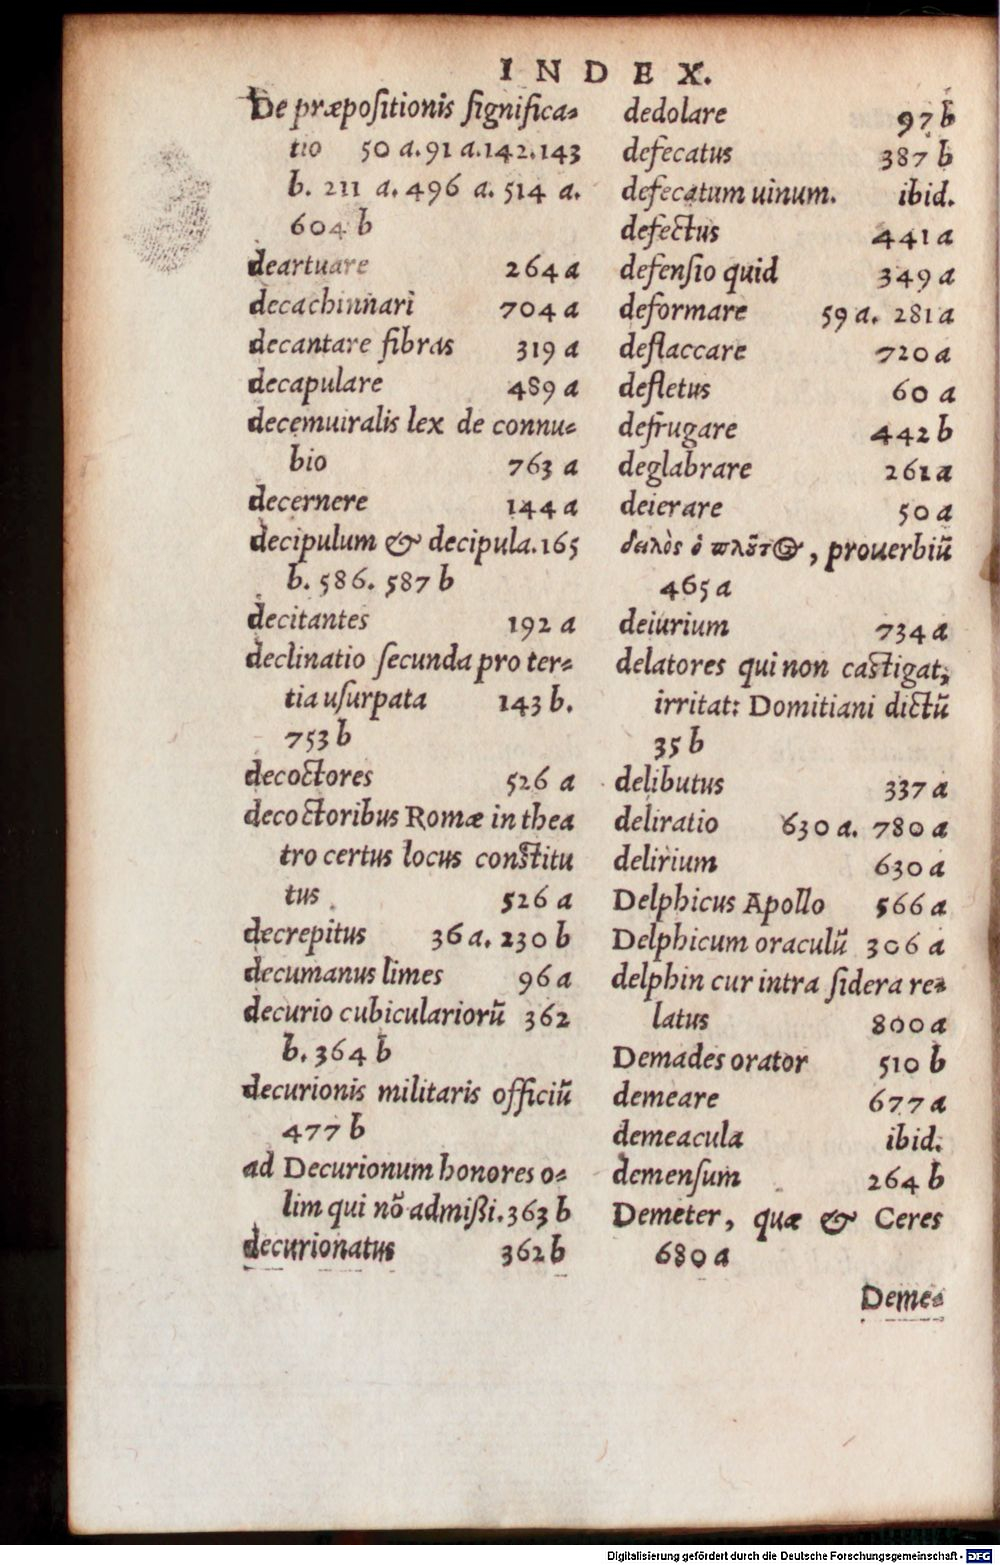 INDEX.
De præpositionis significa-
tio 50 a. 91 a. 142. 143
b. 211 a. 496 a. 514 a.
604 b
deartuare 264 a
decachinnari 704 a
decantare fibras 319 a
decapulare 489 a
decemuiralis lex de connu-
bio 763 a
decernere 144 a
decipulum & decipula. 165
b. 586. 587 b
decitantes 192 a
declinatio secunda pro ter-
tia usurpata 143 b.
753 b
decoctores 526 a
decoctoribus Romæ in thea
tro certus locus constitu
tus 526 a
decrepitus 36 a. 230 b
decumanus limes 96 a
decurio cubiculariorũ 362
b. 364 b
decurionis militaris officiũ
477 b
ad Decurionum honores o-
lim qui nõ admißi. 363 b
decurionatus 362 b
dedolare 97 b
defecatus 387 b
defecatum uinum. ibid.
defectus 441 a
defensio quid 349 a
deformare 59 a. 281 a
deflaccare 720 a
defletus 60 a
defrugare 442 b
deglabrare 261 a
deierare 50 a
δειλὸς ὁ πλοῦτος, prouerbiũ
465 a
deiurium 734 a
delatores qui non castigat,
irritat: Domitiani dictũ
35 b
delibutus 337 a
deliratio 630 a. 780 a
delirium 630 a
Delphicus Apollo 566 a
Delphicum oraculũ 306 a
delphin cur intra sidera re-
latus 800 a
Demades orator 510 b
demeare 677 a
demeacula ibid.
demensum 264 b
Demeter, quæ & Ceres
680 a
Deme-
Digitalisierung gefördert durch die Deutsche Forschungsgemeinschaft - DFG